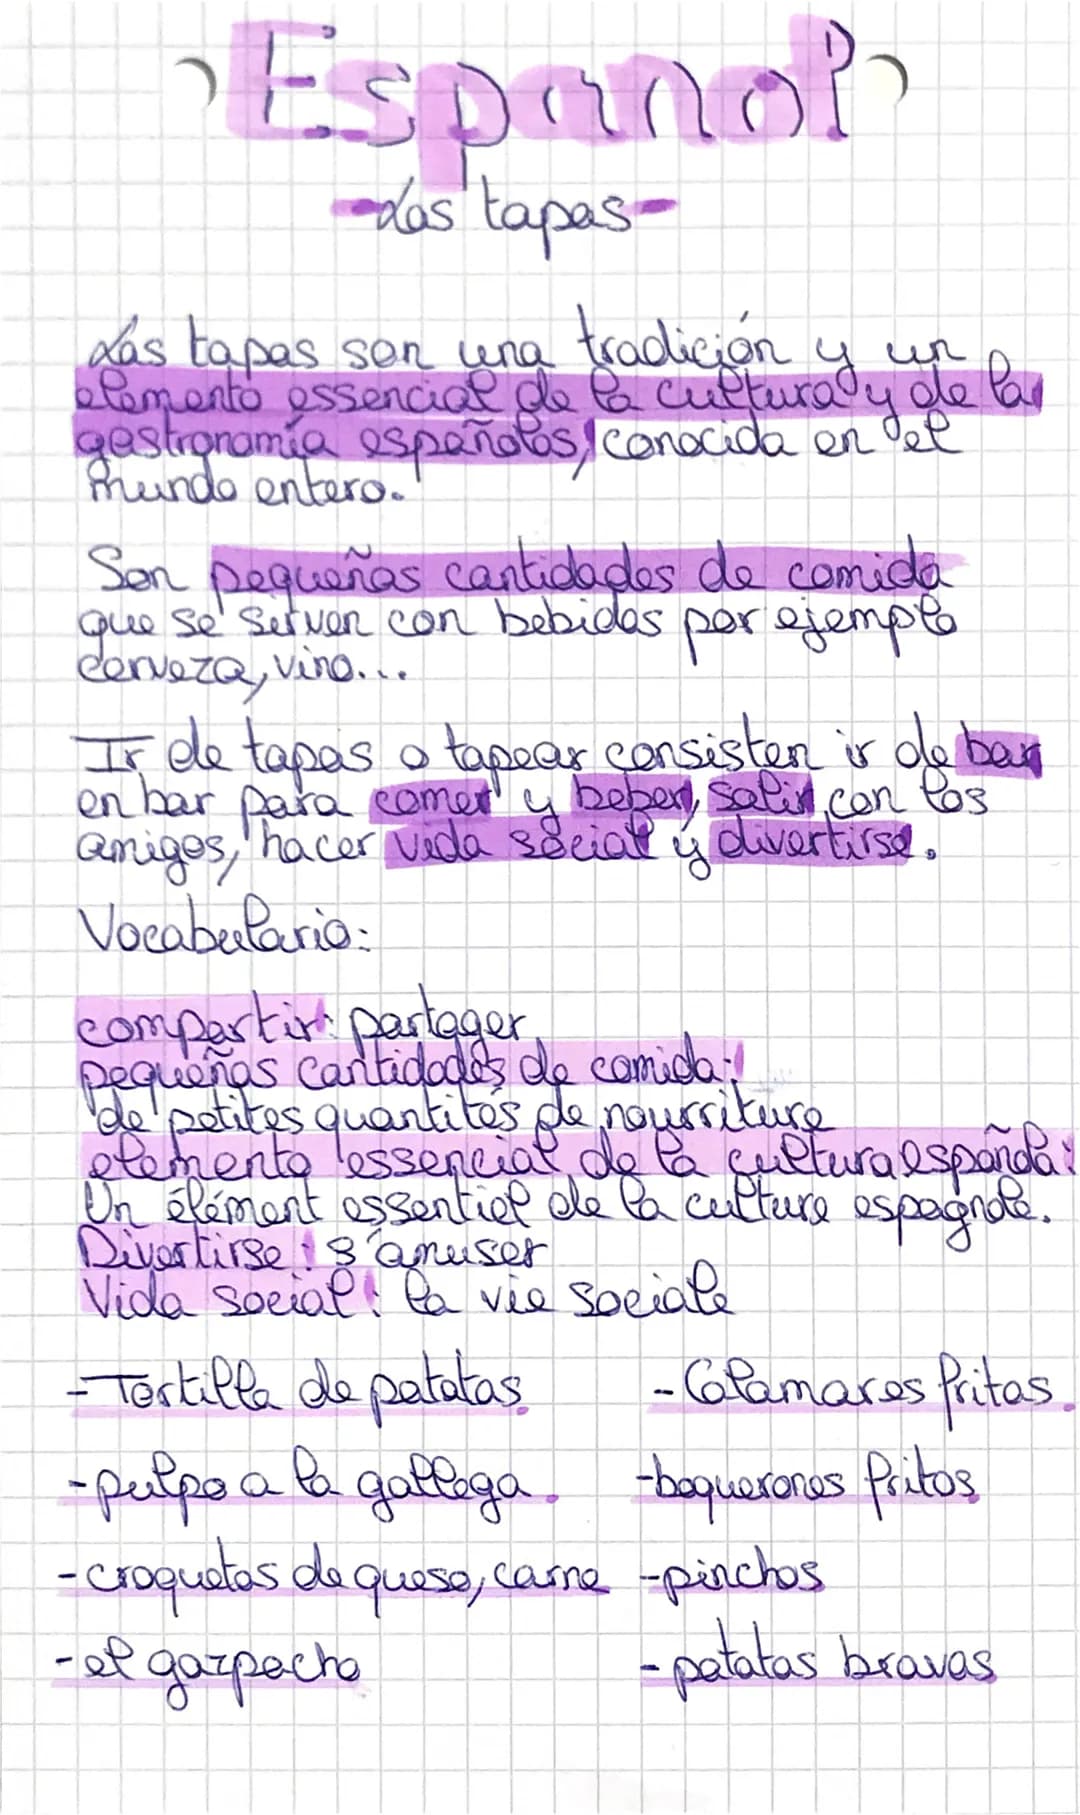 Espanol
-Las tapas-
Las tapas son una tradición y un
elemento essencial de la cultura y de la
gastronomía españolas, conocida en el
mundo entero.
Son pequeñas cantidades de comida
que se serven con bebidas por ejemplo
cerveza, vino...
Ir de tapas o tapear consisten ir de bar
en bar para comer y beber, salir con los
amigos, hacer vida social y divertirse.
Vocabulario:
compartir: partager
pequeñas cantidades de comida:
de petites quantités de nourriture
elemento essencial de la cultura española:
Un élément essentiel de la culture espagnole.
Divertirse : s'amuser
Vida social : la vie sociale
-Tortilla de patatas
-Calamares fritas.
-pulpo a la gallega.
-boquerones fritos
-croquetas de queso, carne
-pinchos
-el gazpacho
-patatas bravas